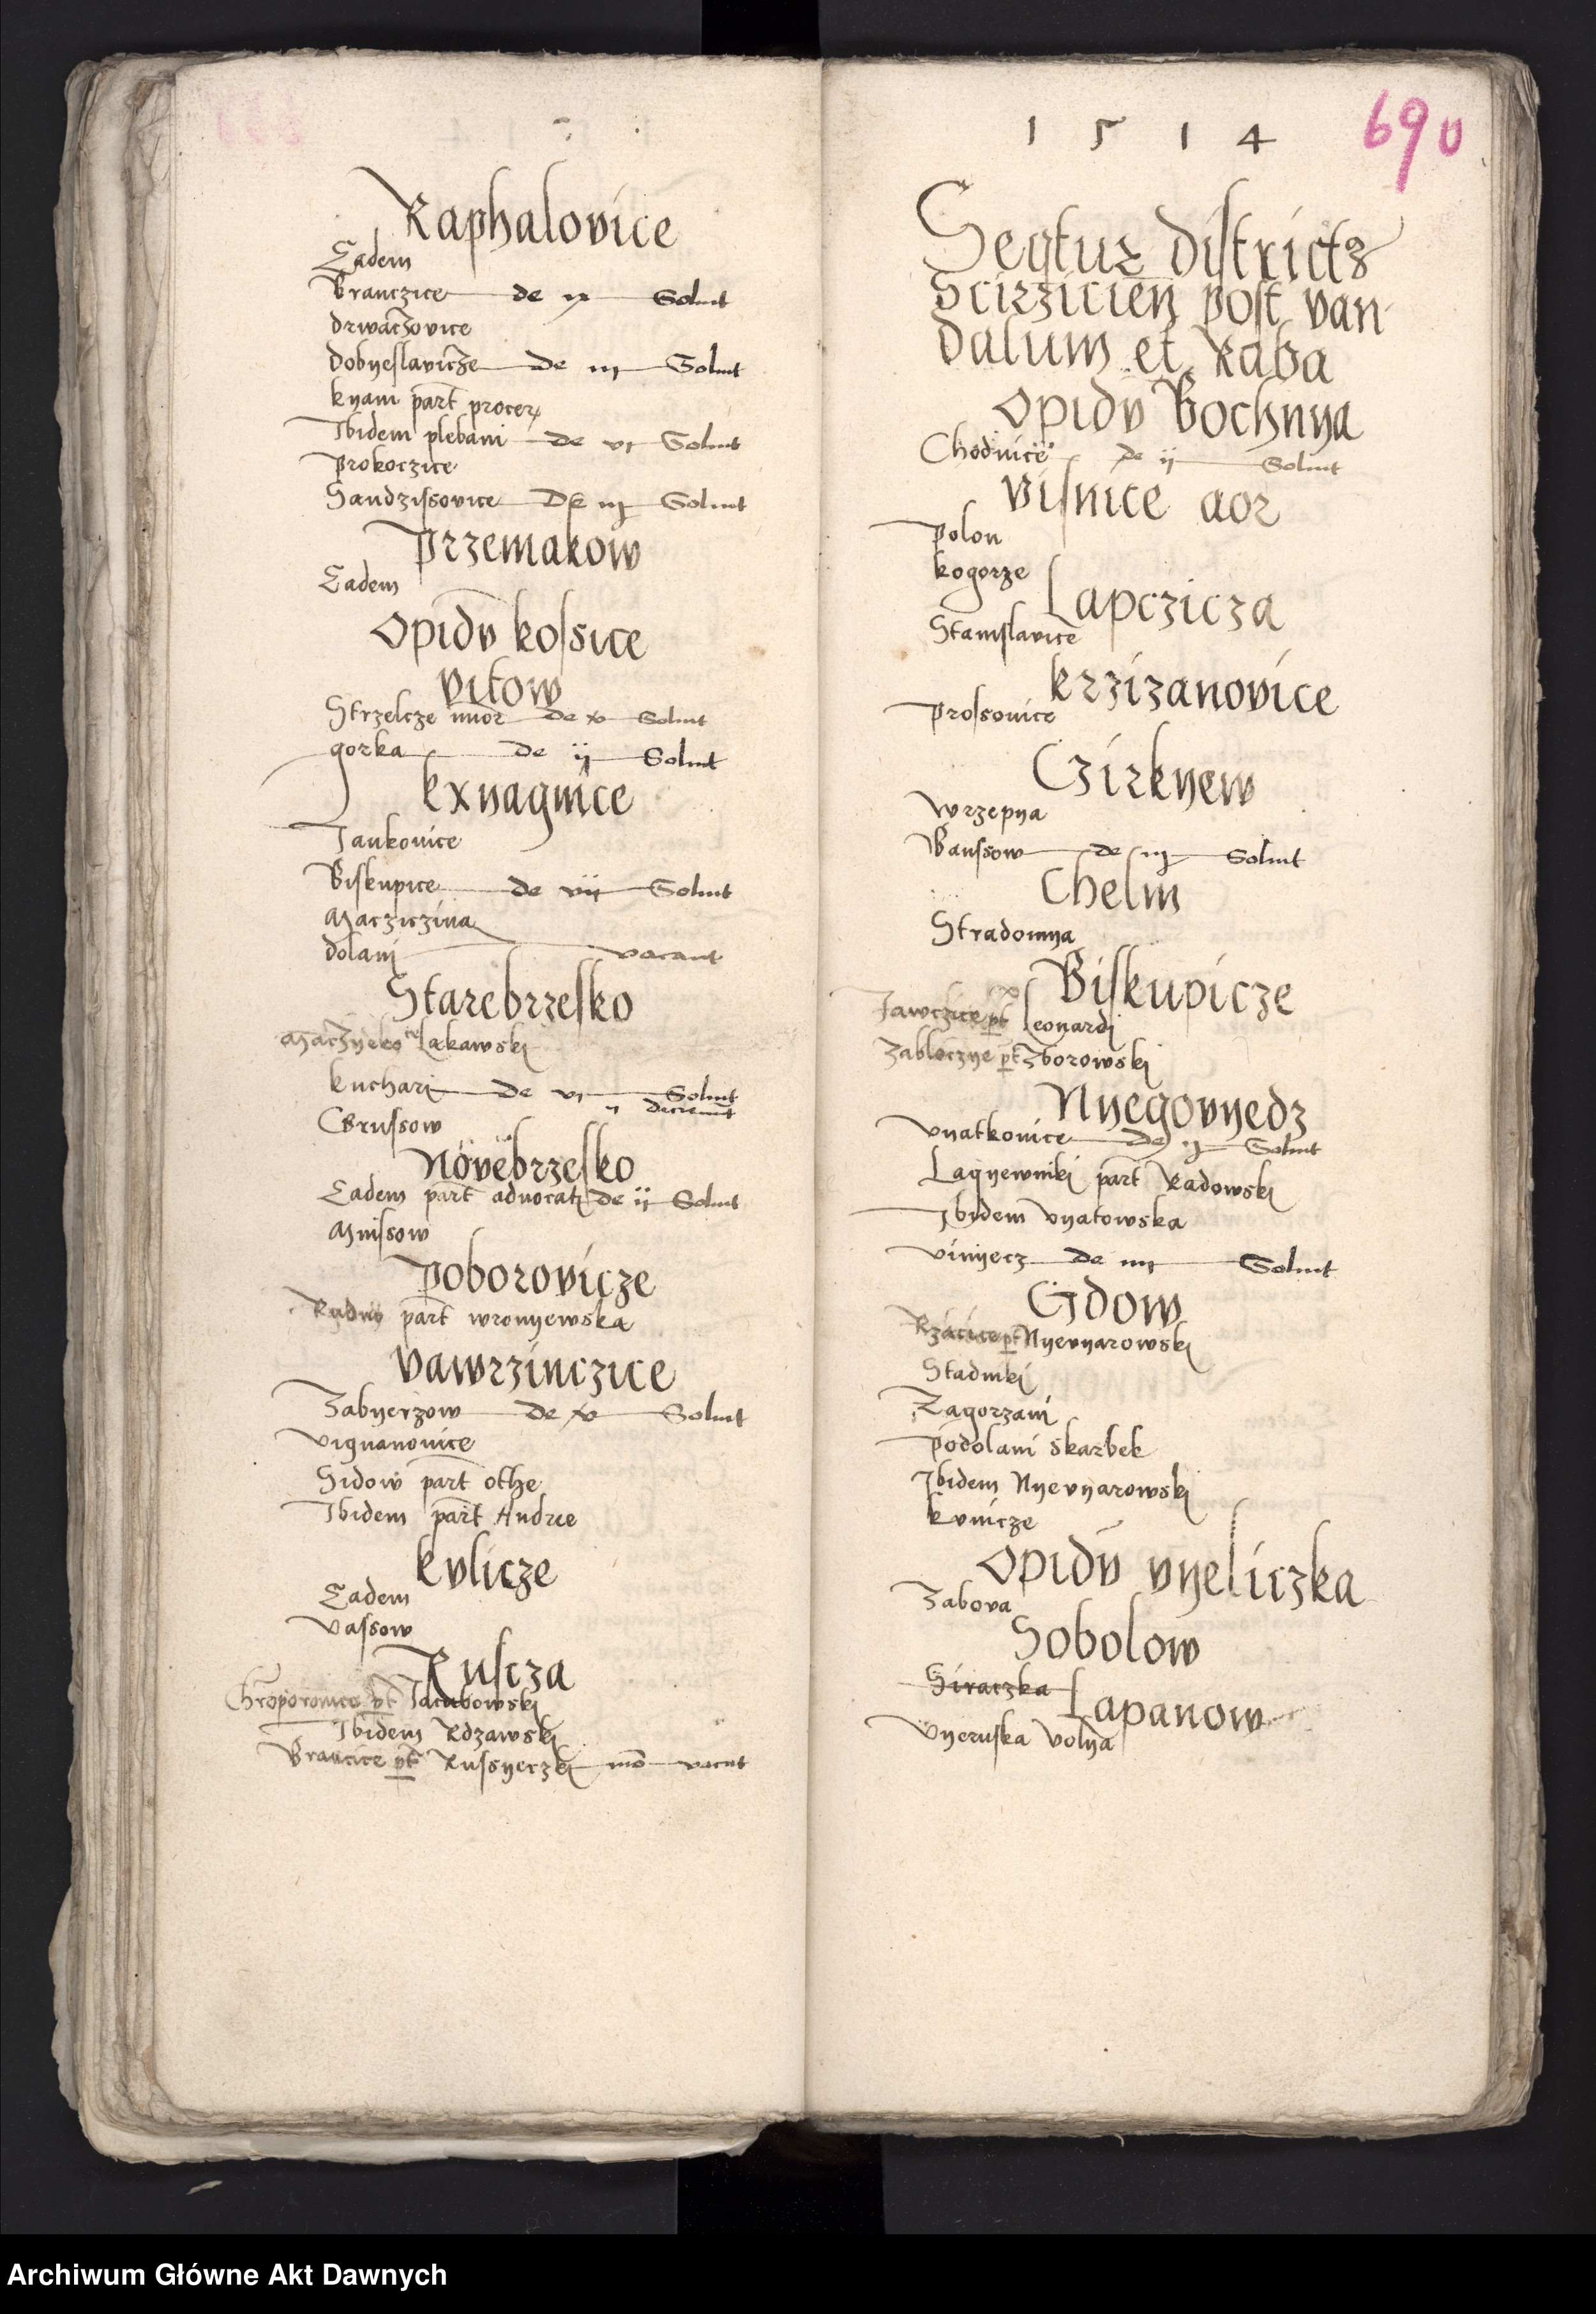 Raphalovice
Eadem
Branczice de ix Solvit
drwaczovice
dobyeslavicze de iii Solvit
knam part procer
Ibidem plebani de vi Solvit
Prokoczice
Sandzissovice De iii Solvit
Przemakow
Eadem
Opidu kossice
vitow
Strzelcze minor de x Solvit
gorka de ii Solvit
kxnagnice
Jankovice
Biskupice de vii Solvit
Macziczina
dolani vacant
Starebrzesko
Lakawski
kuchari de vi Solvit
Grussow
Novebrzesko
Eadem part advocati de ii Solvit
Mnissow
Poborovicze
part wronyewska
vawrzinczice
Zabyerzow de x Solvit
vignanovice
Sidow part othe
Ibidem part Andree
kvlicze
Eadem
vassow
Ruscza
Jacubowski
Ibidem Rdzawski
Brancice pt Russyeczki mo vacat
1 5 1 4
690
Seqtur districtus
Scirzicien post van
dalum et Raba
Opidu Bochnya
Chodnice de ii Solvit
Visnice aor
Polon
kogorze
Lapczicza
Stanislavice
krzizanovice
Prossovice
Czirknew
wrzepya
Banssow de iii Solvit
Chelm
Stradomya
Biskupicze
Jawczice pt Leonardi
Zabloczye pt Zborowski
Nyegovyedz
vyatkovice de ii Solvit
Lagyewniki part Radowski
Ibidem vyatowska
vinyecz de iiii Solvit
Gdow
Rzacice pt Nyevyarowski
Stadniki
Zagorzani
Podolani skarbek
Ibidem Nyevyarowski
kvnicze
Opidu vyeliczka
Zabova
Sobolow
Siraczka
Lapanow
vyeruska volya
Archiwum Główne Akt Dawnych